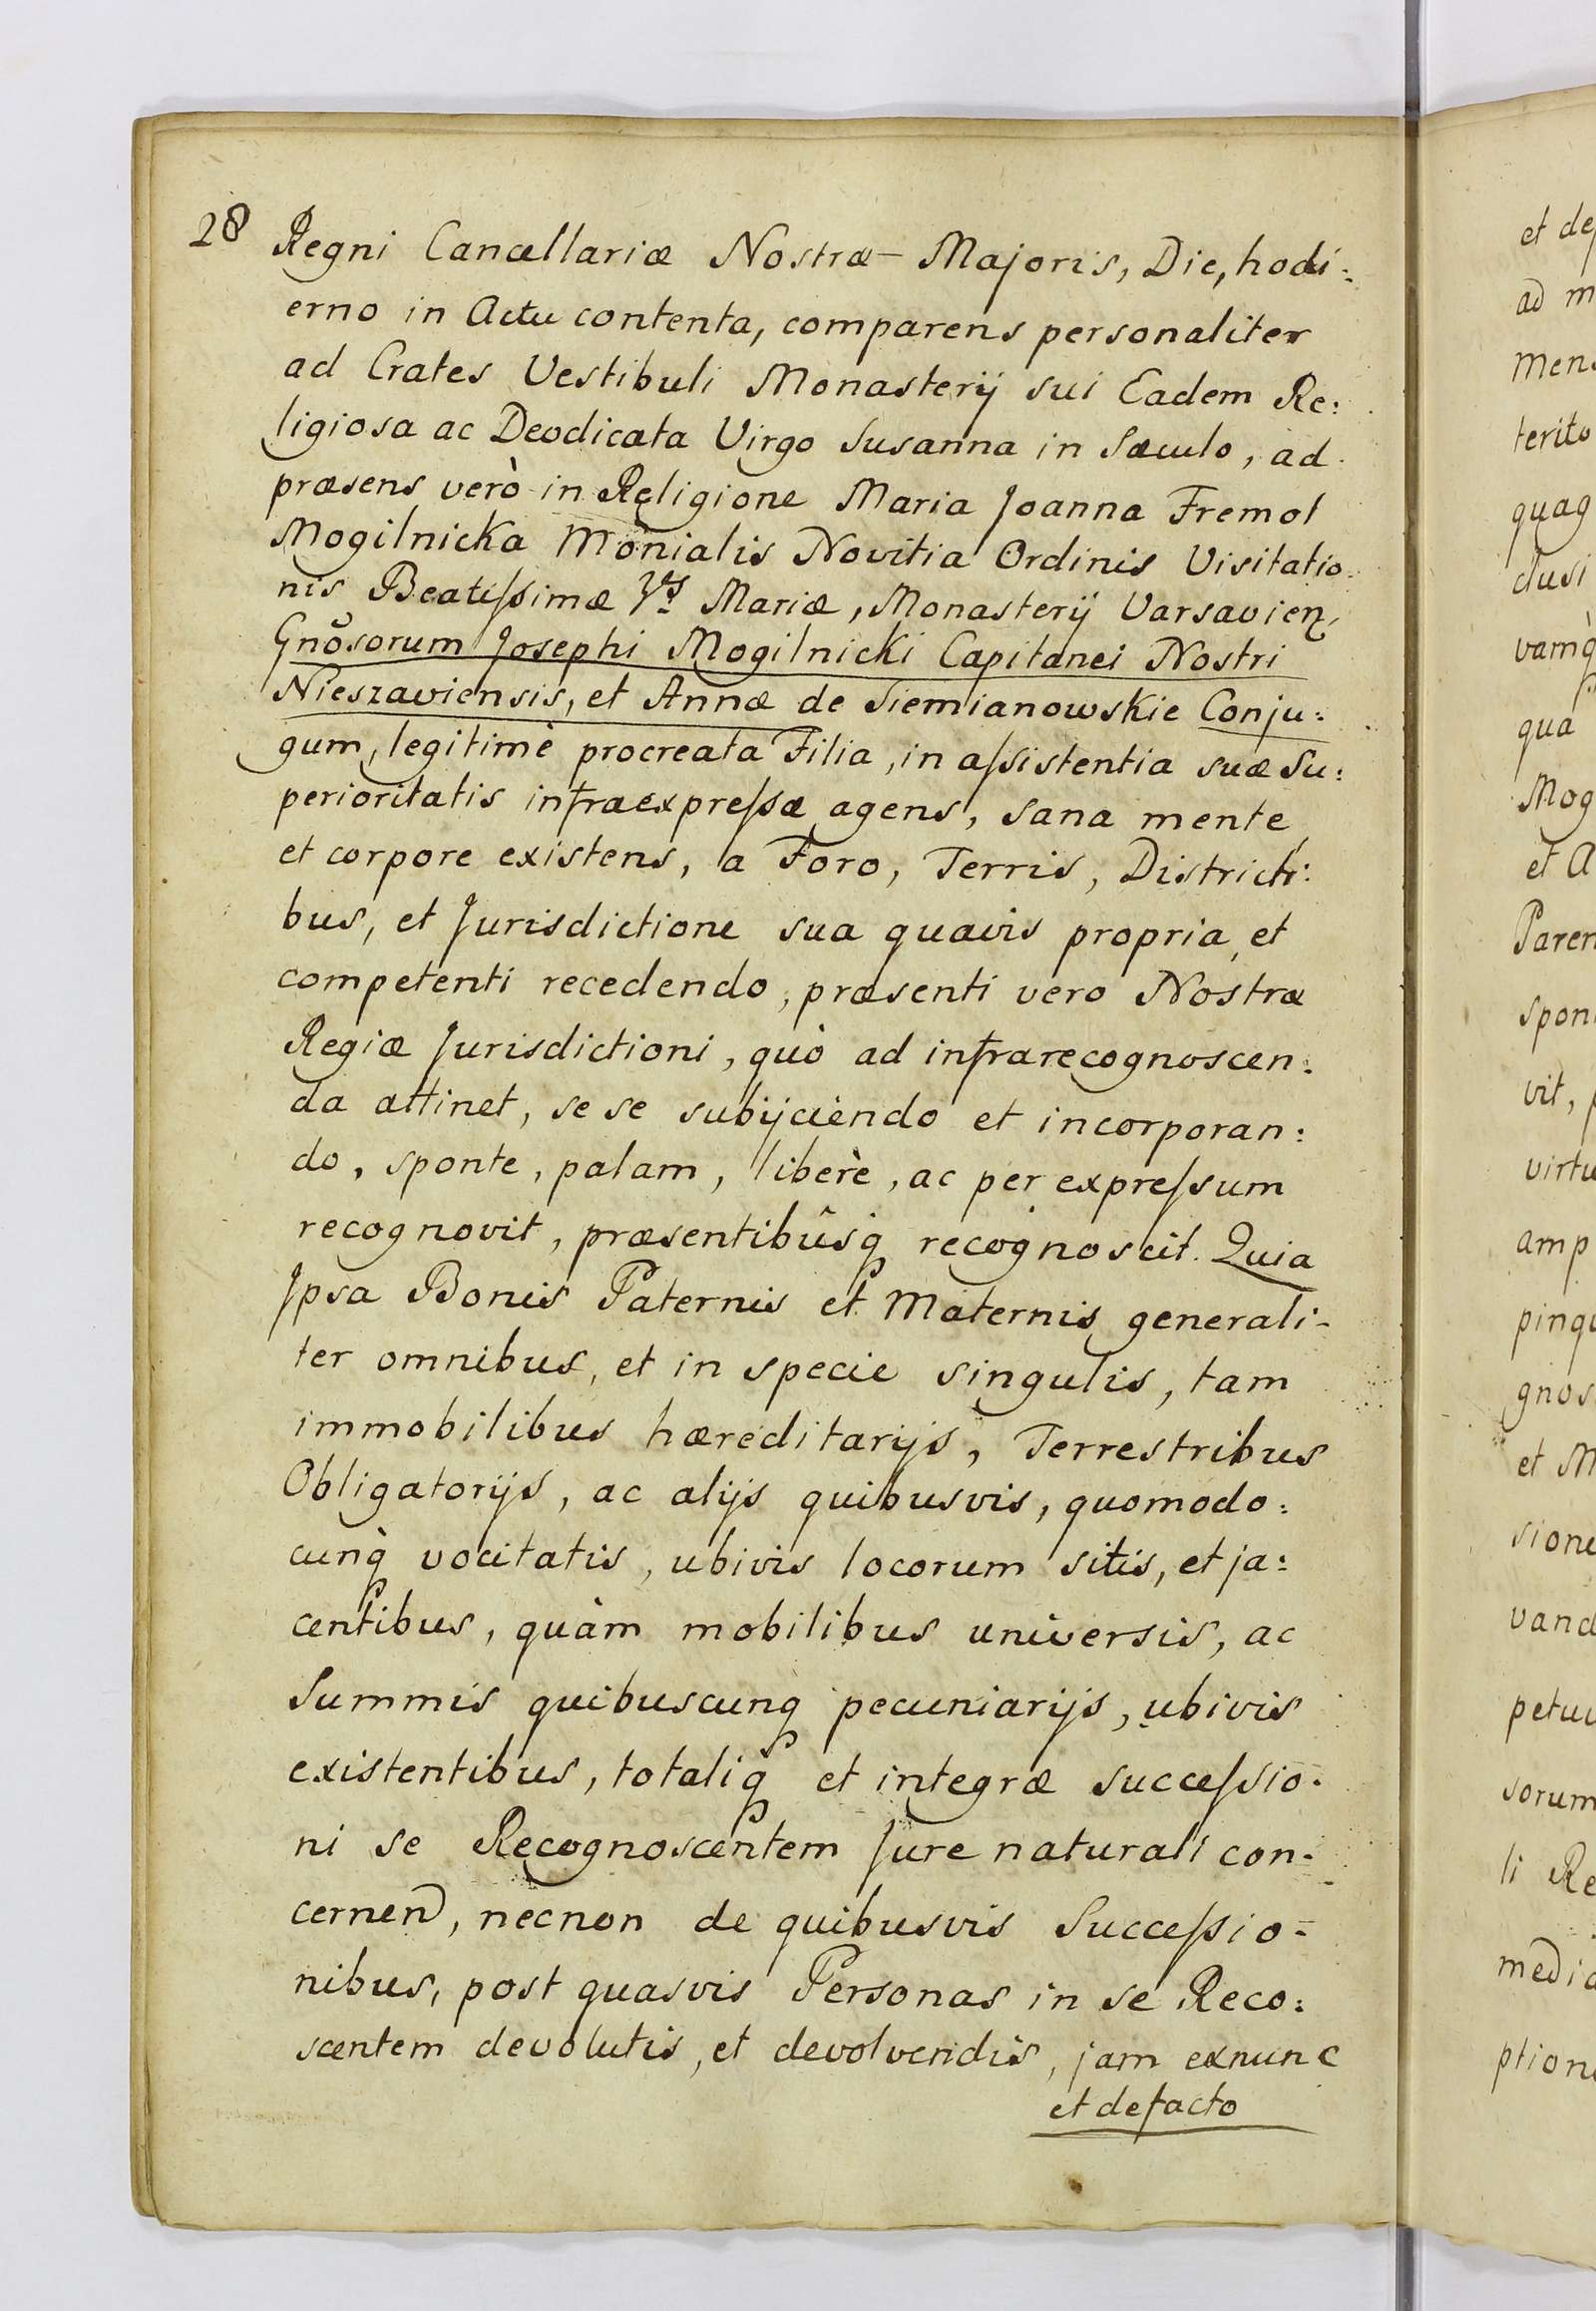 28
Regni Cancellariæ Nostræ Majoris, Die, hodi:
erno in Actu contenta, comparens personaliter
ad Crates Vestibuli Monasterij sui Eadem Re:
ligiosa ac Deodicata Virgo Susanna in Sæculo, ad
præsens verò in Religione Maria Joanna Fremol
Mogilnicka Monialis Novitia Ordinis Visitatio
nis Beatiſsimæ Vs Mariæ, Monasterij Varsavien,
Gnõsorum Josephi Mogilnicki Capitanei Nostri
Nieszaviensis, et Annæ de Siemianowskie Conju:
gum, legitimè procreata Filia, in aſsistentia suæ Su:
perioritatis infraexpreſsæ agens, sana mente
et corpore existens, a Foro, Terris, Districti:
bus, et Jurisdictione sua quavis propria, et
competenti recedendo, præsenti vero Nostræ
Regiæ Jurisdictioni, quò ad infrarecognoscen:
da attinet, se se subijciendo et incorporan:
do, sponte, palam, liberè, ac per expreſsum
recognovit, præsentibûsq̀ recognoscit. Quia
Ipsa Bonis Paternis et Maternis generali-
ter omnibus, et in specie singulis, tam
immobilibus hæreditarijs, Terrestribus
Obligatorijs, ac alijs quibusvis, quomodo:
cunq̀ vocitatis, ubivis locorum sitis, et ja:
centibus, quàm mobilibus universis, ac
Summis quibuscunq pecuniarijs, ubivis
existentibus, totaliq̀ et integræ succeſsio-
ni se Recognoscentem Jure naturali con-
cernen, necnon de quibusvis Succeſsio-
nibus, post quasvis Personas in se Reco:
scentem devolutis, et devolvendis, jam exnunc
et defacto
et de
ad m
mens
terito
quag
clusi
vamq̀
qua
Mog
et A
Paren
spon
vit,
virtu
amp
pingu
gnos
et M
sione
vand
petui
sorum
li Re
media
ptione